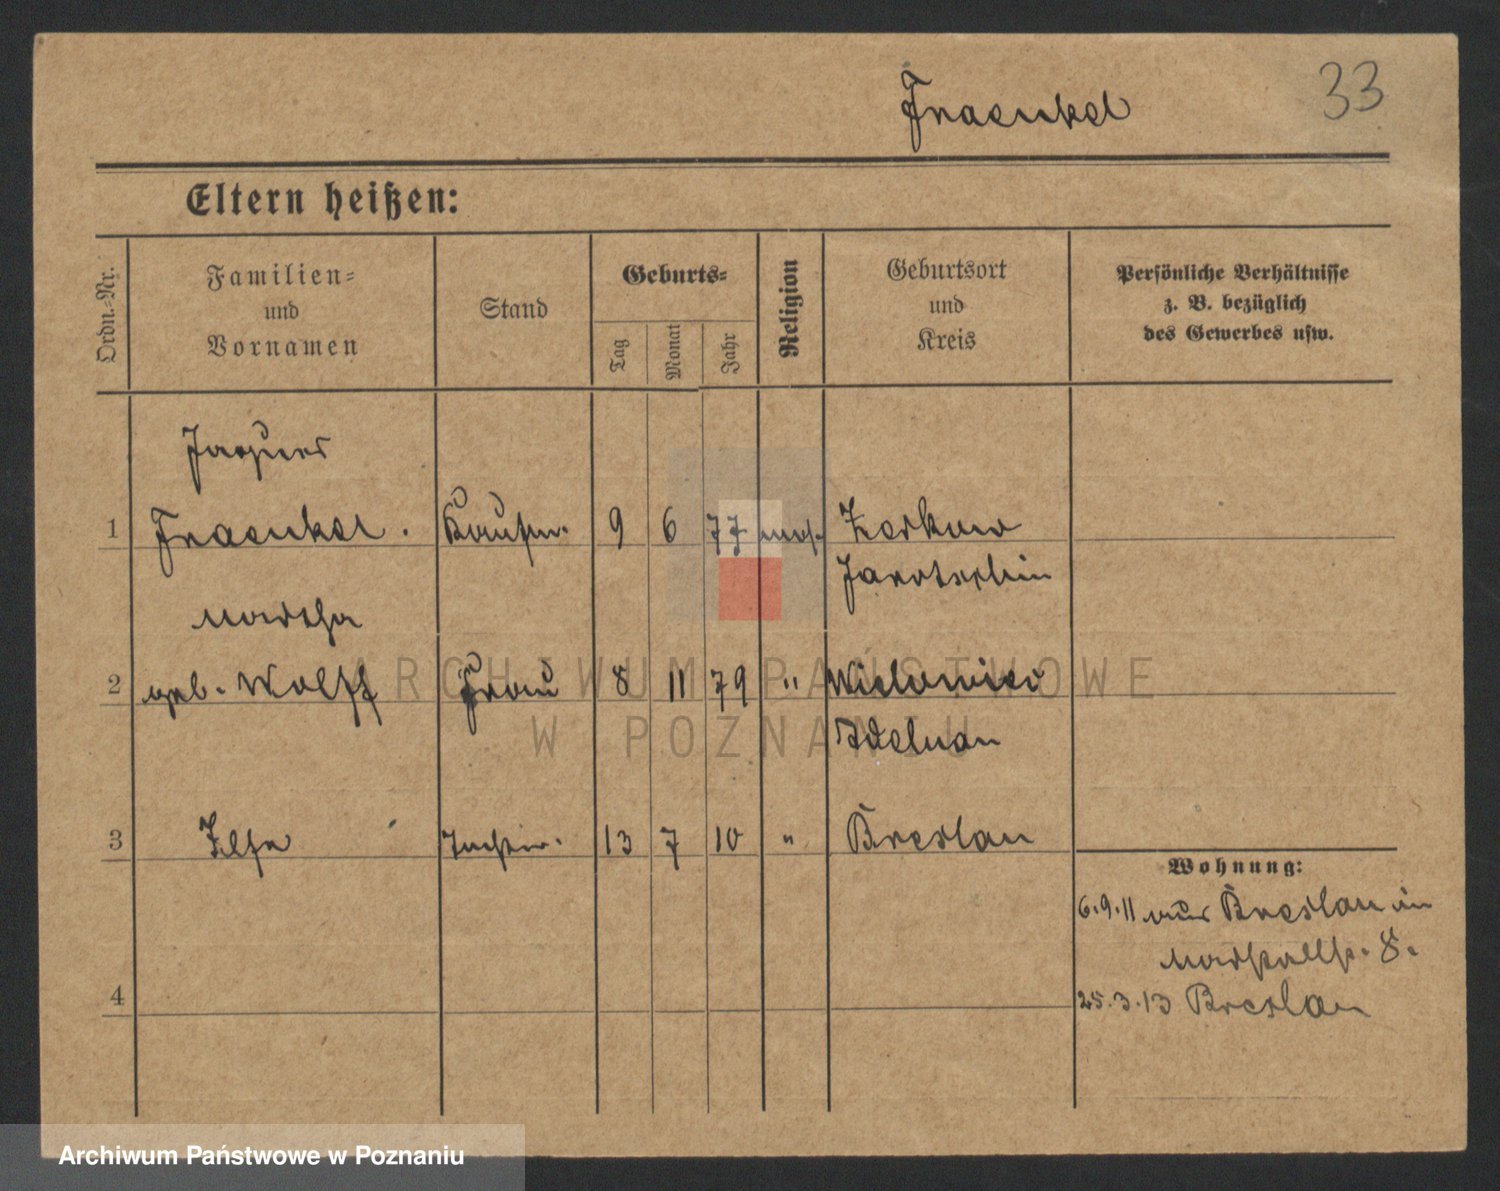 33
Fraenkel
Eltern heißen:
Ordn.-Nr.
Familien-
und
Vornamen
Stand
Geburts-
Tag
Monat
Jahr
Religion
Geburtsort
und
Kreis
Persönliche Verhältnisse
z. B. bezüglich
des Gewerbes usw.
Jaques
1 Fraenkel. Kaufm. 9 6 77 mos. Zerkow
Jarotschin
Martha
2 geb. Wolff Frau 8 11 79 " Wielowies
Adelnau
3 Ilse Tochter. 13 7 10 " Breslau
Wohnung:
6.9.11 aus Breslau in
Marstallstr. 8.
4
25.3.13 Breslau
ARCHIWUM PAŃSTWOWE
W POZNANIU
Archiwum Państwowe w Poznaniu